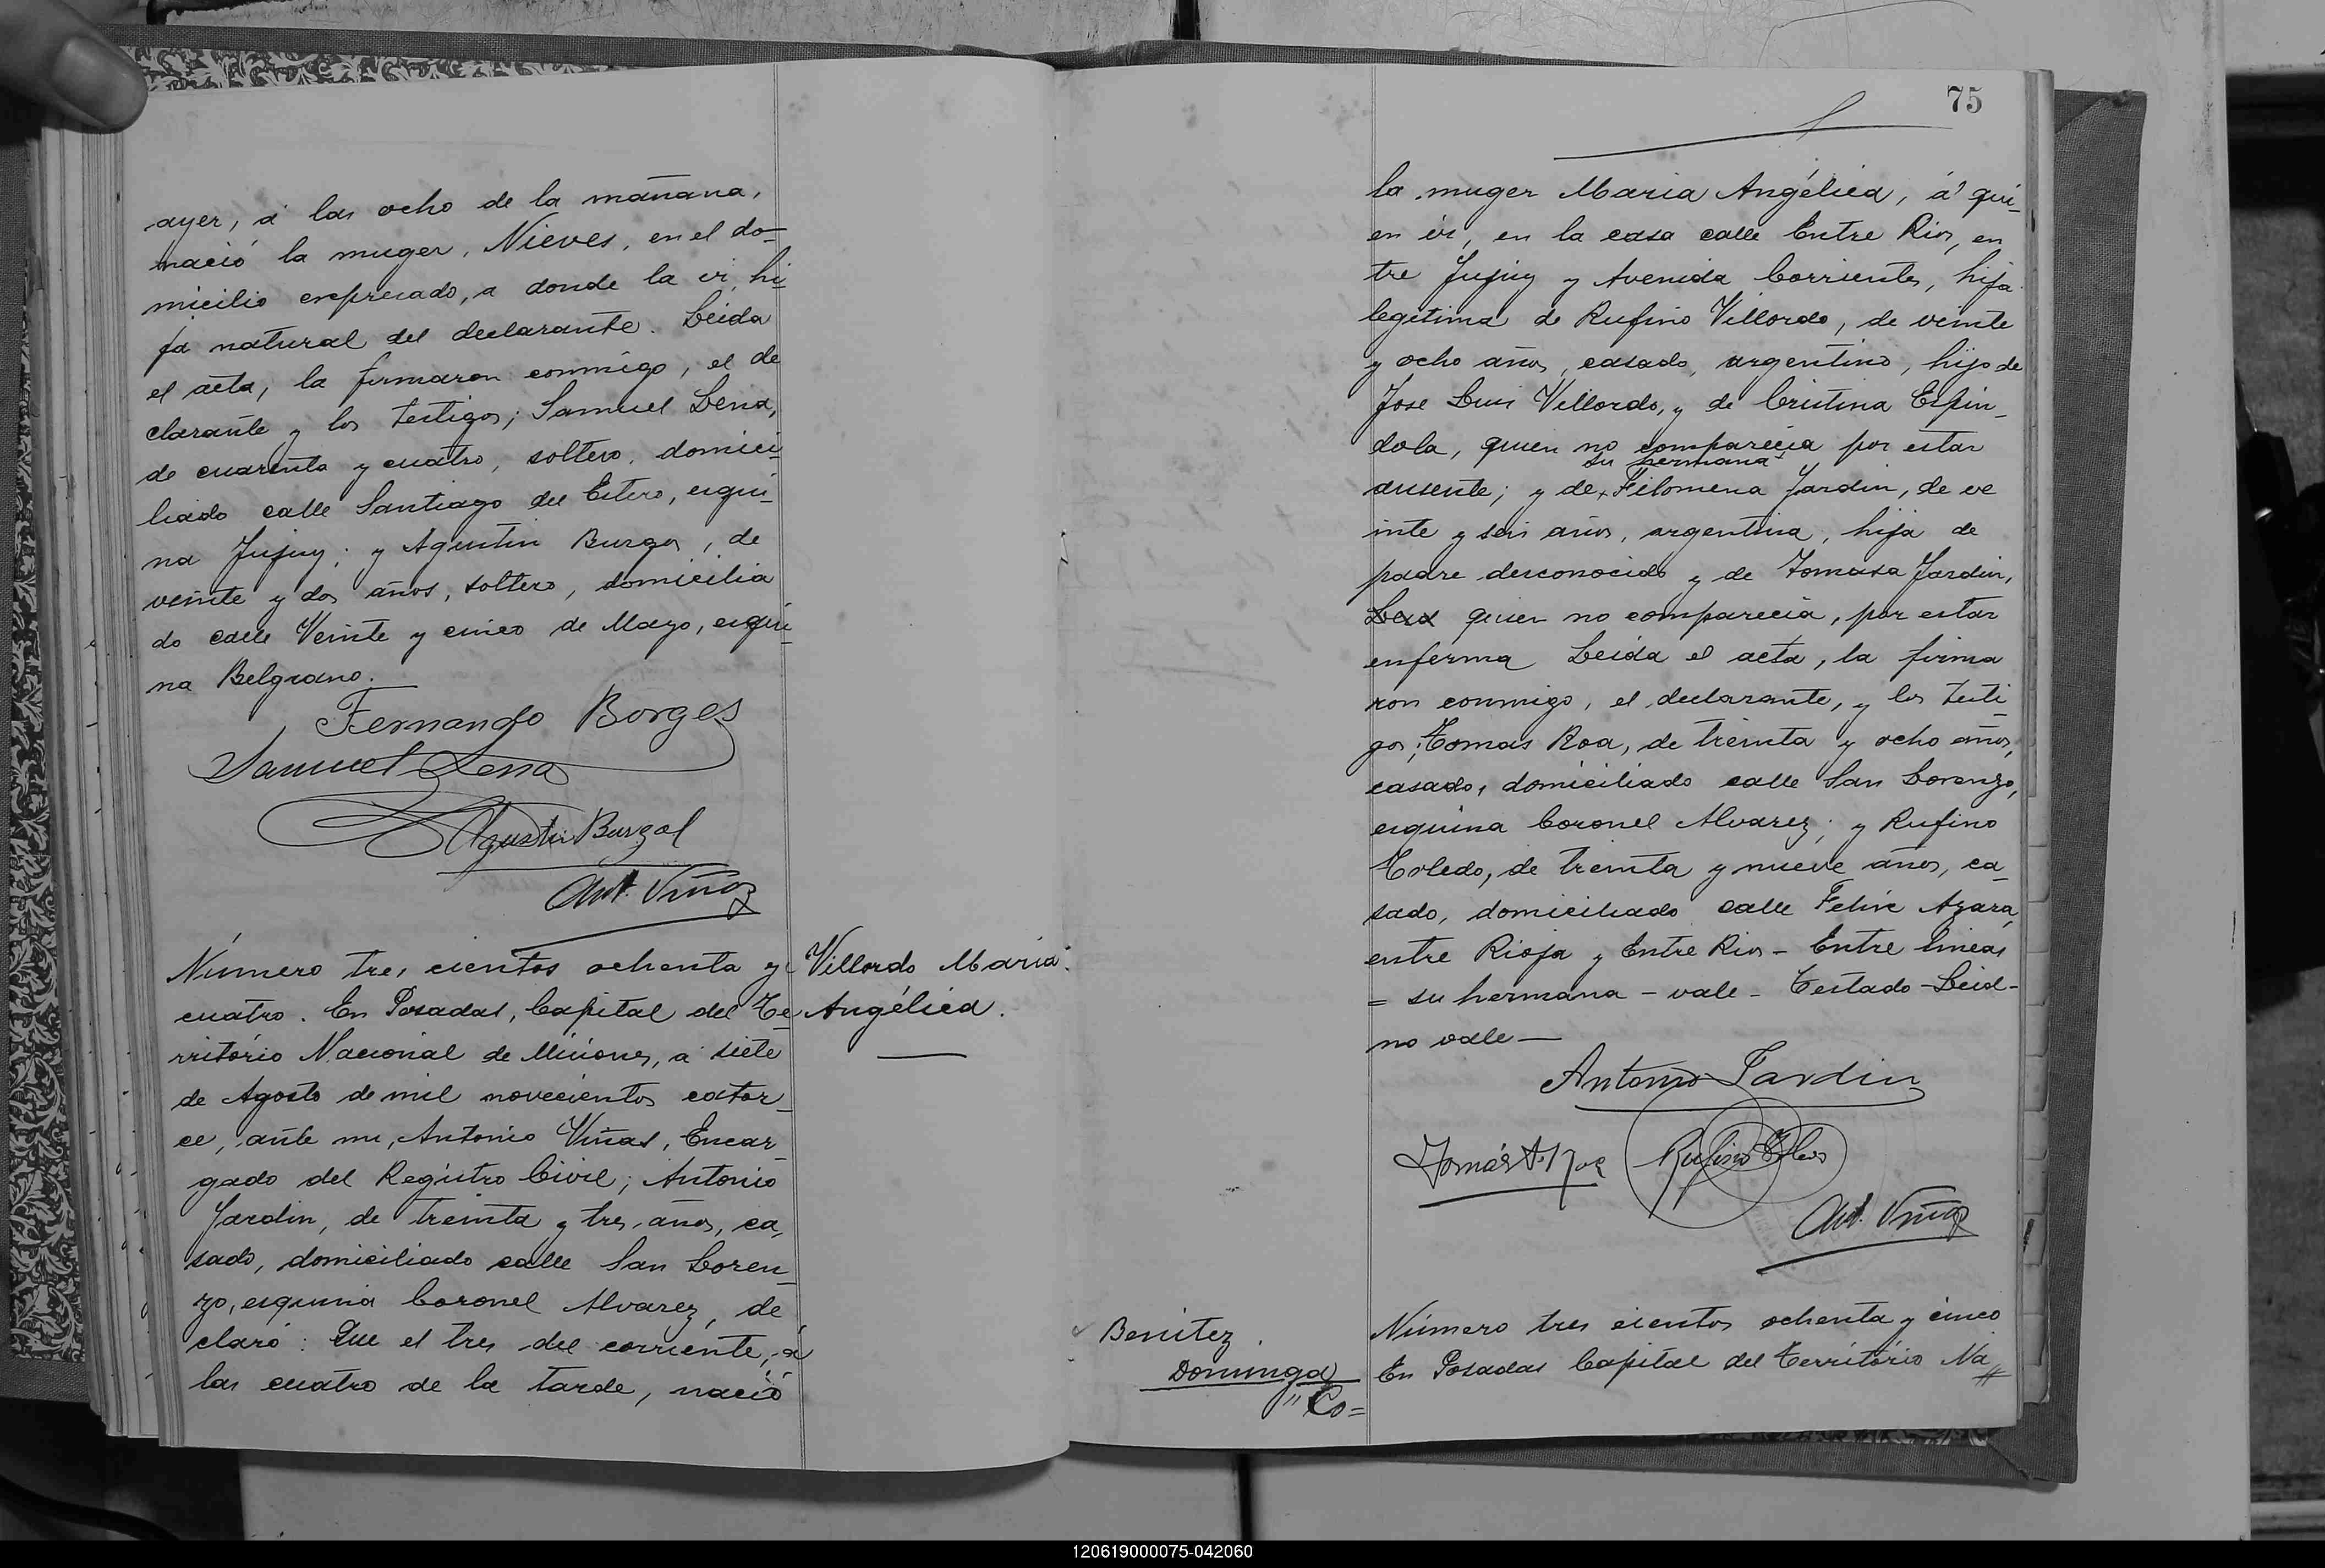 ayer, á las ocho de la mañana,
nació la muger, Nieves, en el do-
micilio expresado, a donde la vi, hi-
ja natural del declarante. Leida
el acta, la firmaron conmigo, el de
clarante y los testigos; Samuel Lena,
de cuarenta y cuatro, soltero, domici-
liado calle Santiago del Estero, esqui-
na Jujuy; y Agustin Burgos, de
veinte y dos años, soltero, domicilia
do calle Veinte y cinco de Mayo, esqui-
na Belgrano.
Fernando Borges
Samuel Lena
Agustin Burgos
Ant. Viñas
Número tres cientos ochenta y
cuatro. En Posadas, Capital del Te-
rritorio Nacional de Misiones, a siete
de Agosto de mil novecientos cator-
ce, ante mi, Antonio Viñas, Encar-
gado del Registro Civil; Antonio
Jardin, de treinta y tres años, ca-
sado, domiciliado calle San Loren-
zo, esquina Coronel Alvarez, de
claró: Que el tres del corriente, á
las cuatro de la tarde, nació
Villordo Maria
Angélica.
75
la muger Maria Angélica, á qui-
en vi, en la casa calle Entre Rios, en
tre Jujuy y Avenida Corrientes, hija
legitima de Rufino Villordo, de veinte
y ocho años, casado, argentino, hijo de
Jose Luis Villordo, y de Cristina Espin-
dola, quien no comparecia por estar
su hermana
ausente; y de Filomena Jardin, de ve
inte y seis años, argentina, hija de
padre desconocido y de Tomasa Jardin,
quien no comparecia, por estar
enferma Leida el acta, la firma
ron conmigo, el declarante, y los testi-
gos; Tomas Roa, de treinta y ocho años,
casado, domiciliado calle San Lorenzo,
esquina Coronel Alvarez; y Rufino
Toledo, de treinta y nueve años, ca-
sado, domiciliado calle Felix Azara,
entre Rioja y Entre Rios - Entre lineas
= su hermana - vale - Testado - Leid -
no vale —
Antonio Jardin
Tomás A. Roa Rufino Toledo
Ant. Viñas
Benitez
Dominga
" Co=
Número tres cientos ochenta y cinco
En Posadas Capital del Territorio Na
120619000075-042060